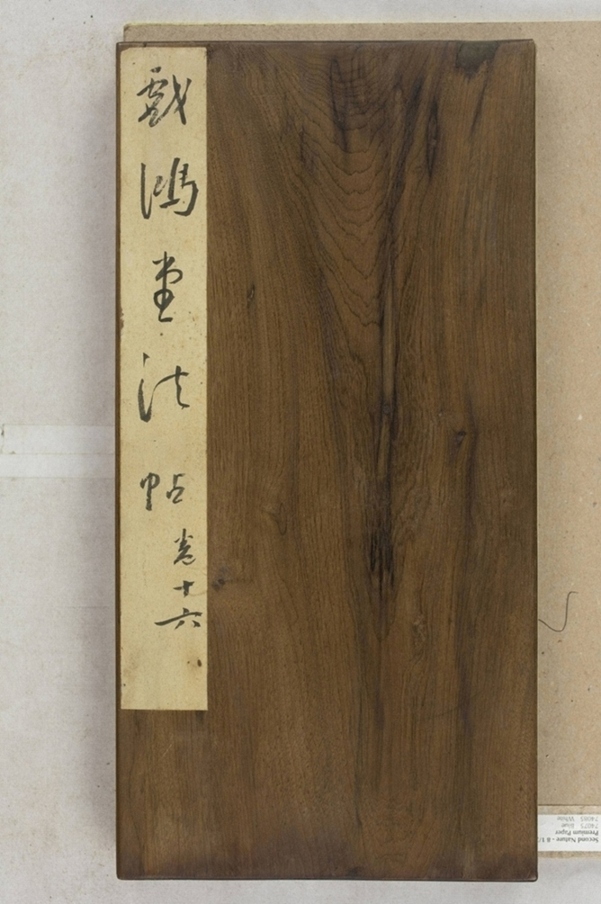 戯鴻堂法帖卷十六
Second Nature - 8 1/2
Premium Paper
White